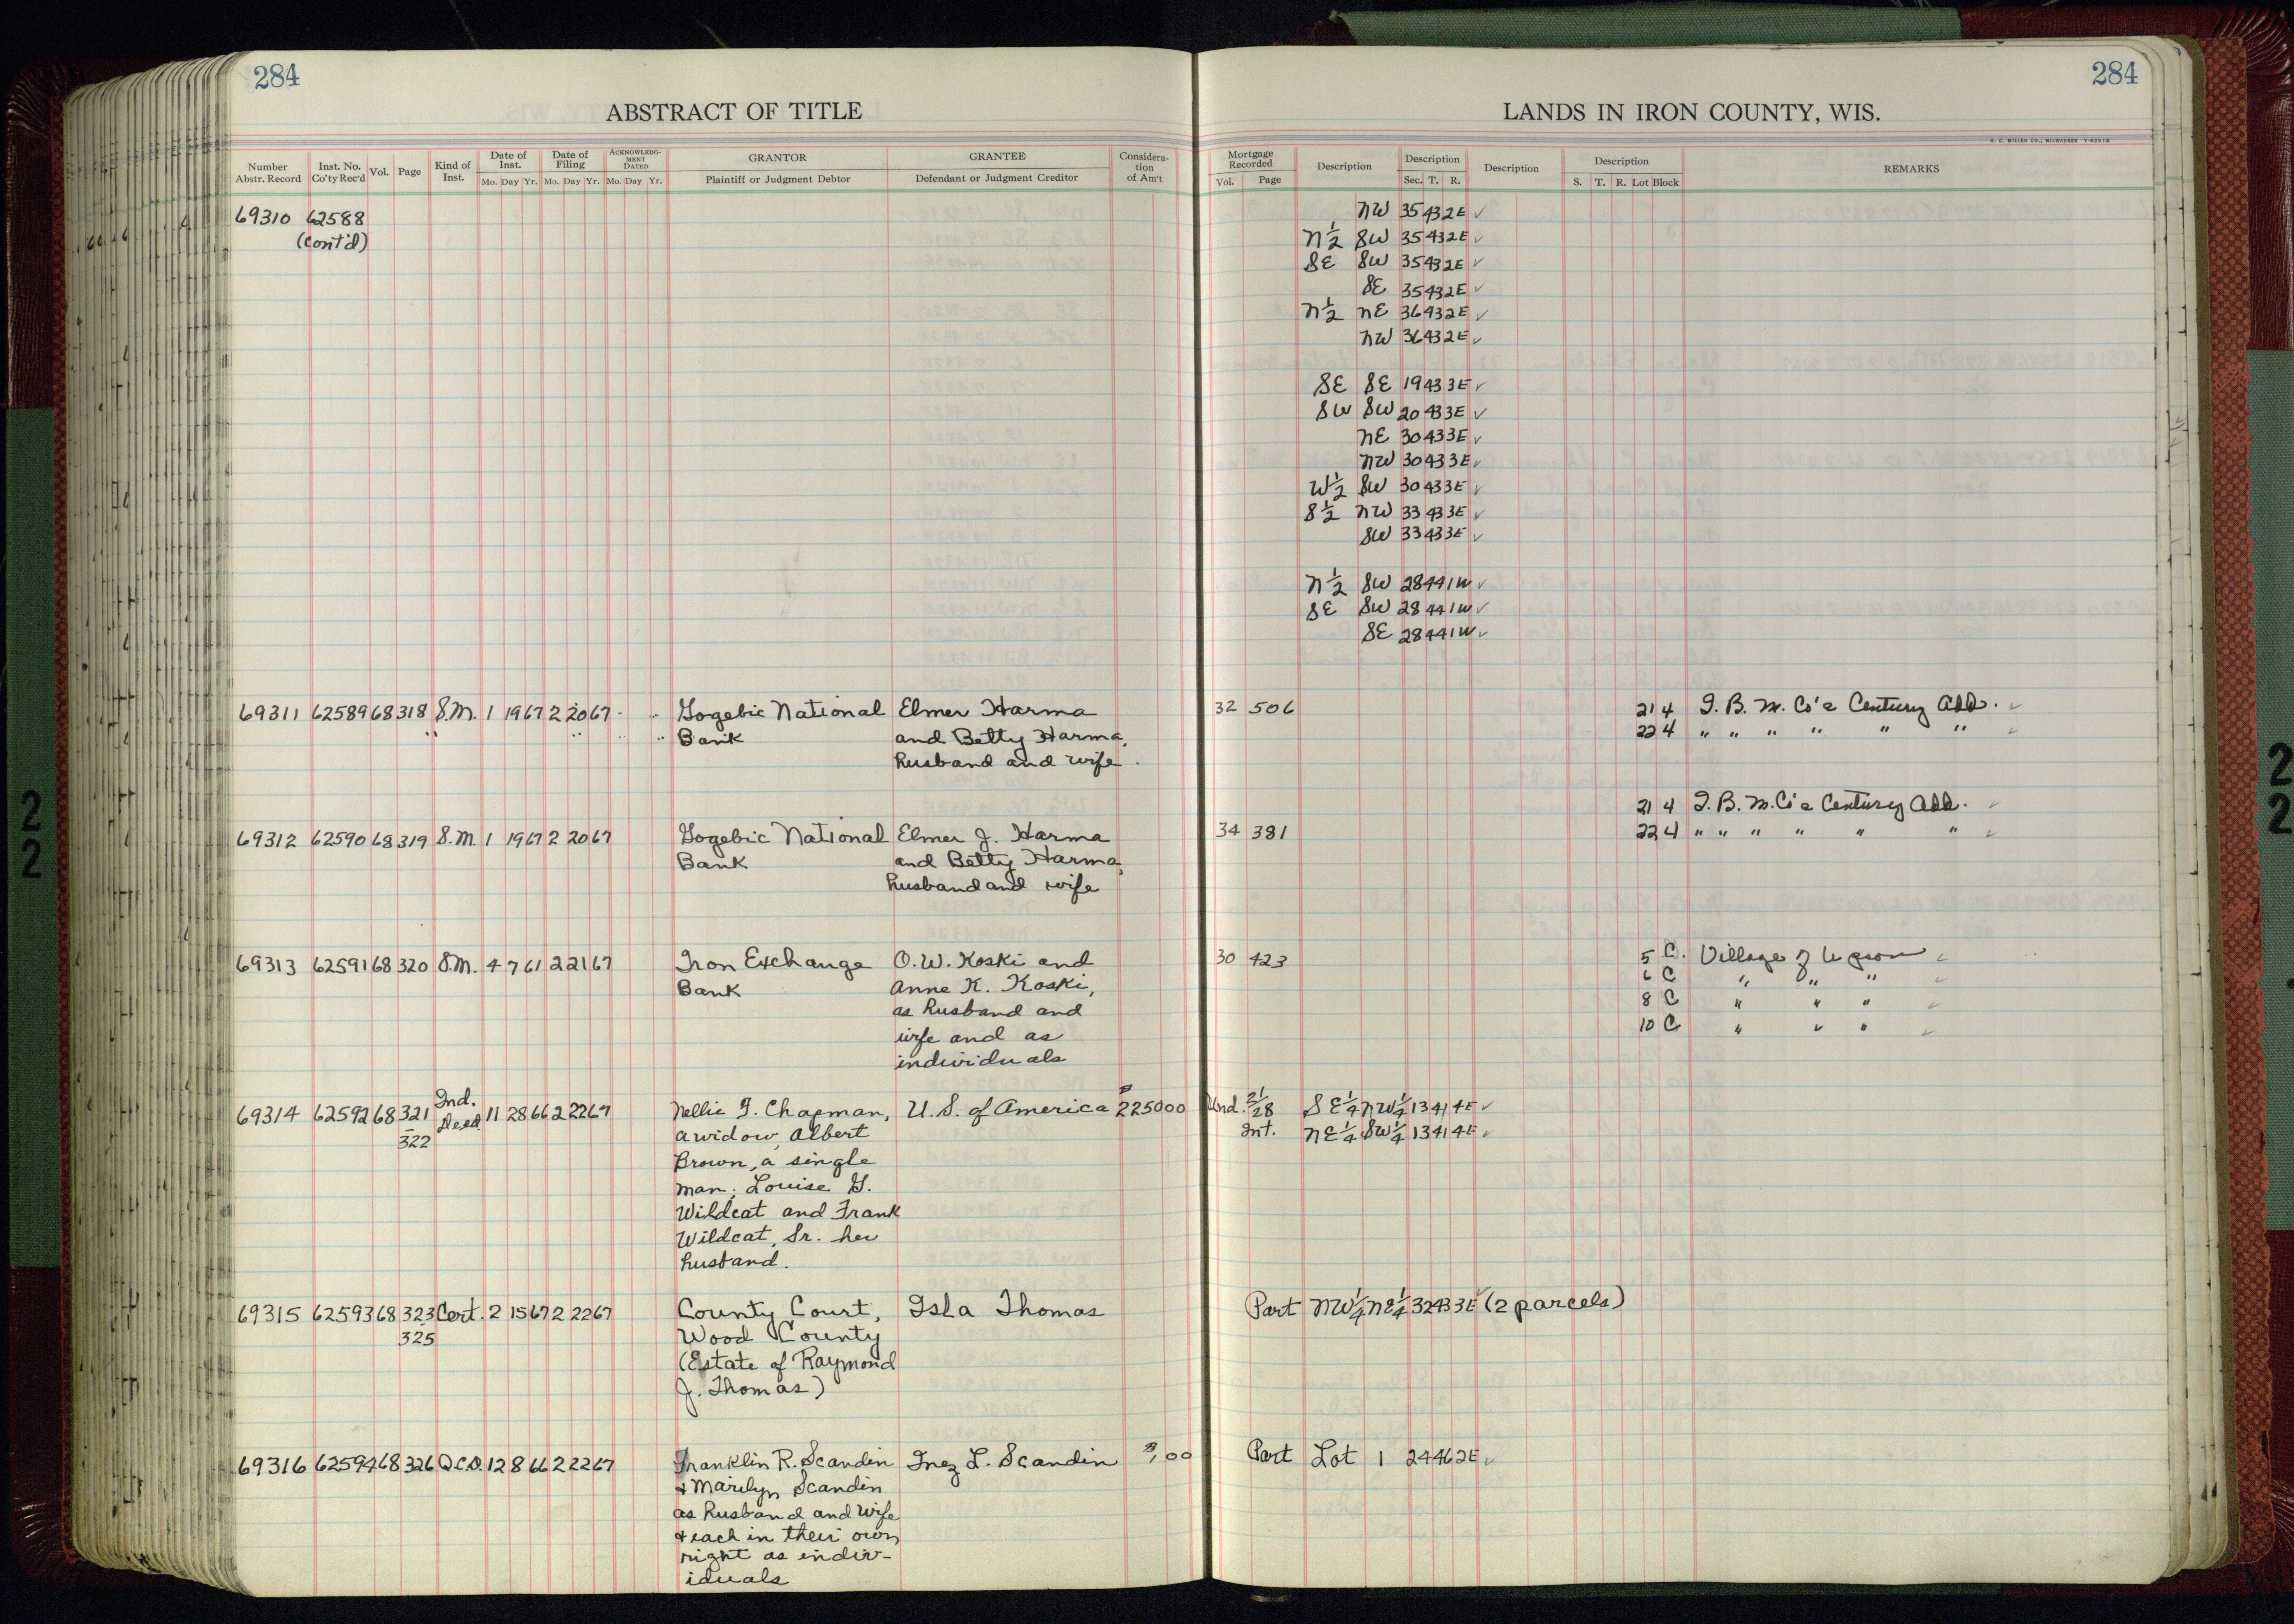 284
ABSTRACT OF TITLE
Number Abstr. Record
Inst. No. Co'ty Rec'd
Vol.
Page
Kind of Inst.
Date of Inst.
Mo. Day Yr.
Date of Filing
Mo. Day Yr.
ACKNOWLEDG-MENT DATED
Mo. Day Yr.
GRANTOR
Plaintiff or Judgment Debtor
GRANTEE
Defendant or Judgment Creditor
Considera-tion of Am't
69310 62588
(cont'd)
69311 62589 68 318 S.M. 1 19 67 2 20 67 Gogebic National Elmer Harma
Bank and Betty Harma,
husband and wife
69312 62590 68 319 S.M. 1 19 67 2 20 67 Gogebic National Elmer J. Harma
Bank and Betty Harma,
husband and wife
69313 62591 68 320 S.M. 4 7 61 2 21 67 Iron Exchange O.W. Koski and
Bank Anne K. Koski,
as husband and
wife and as
individuals
69314 62592 68 321 - 322 Ind. Deed 11 28 66 2 22 67 Nellie G. Chapman, U.S. of America 2250 00
a widow, Albert
Brown, a single
man; Louise G.
Wildcat and Frank
Wildcat, Sr. her
husband.
69315 62593 68 323 - 325 Cert. 2 15 67 2 22 67 County Court, Isla Thomas
Wood County
(Estate of Raymond
J. Thomas)
69316 62594 68 326 Q.C.D. 12 8 66 2 22 67 Franklin R. Scandin Inez L. Scandin 1.00
& Marilyn Scandin
as husband and wife
& each in their own
right as indiv-
iduals
284
LANDS IN IRON COUNTY, WIS.
H. C. MILLER CO., MILWAUKEE Y-62512
Mortgage Recorded
Vol. Page
Description
Description
Sec. T. R.
Description
Description
S. T. R. Lot Block
REMARKS
NW 35 43 2E ✓
N 1/2 SW 35 43 2E ✓
SE SW 35 43 2E ✓
SE 35 43 2E ✓
N 1/2 NE 36 43 2E ✓
NW 36 43 2E ✓
SE SE 19 43 3E ✓
SW SW 20 43 3E ✓
NE 30 43 3E ✓
NW 30 43 3E ✓
W 1/2 SW 30 43 3E ✓
S 1/2 NW 33 43 3E ✓
SW 33 43 3E ✓
N 1/2 SW 28 44 1W ✓
SE SW 28 44 1W ✓
SE 28 44 1W ✓
32 506 21 4 I. B. M. Co's Century Add. ✓
22 4 " " " " " " ✓
21 4 I. B. M. Co's Century Add. ✓
34 381 22 4 " " " " " " ✓
30 423 5 C. Village of Upson ✓
6 C " " " ✓
8 C " " " ✓
10 C " " " ✓
Und. 21/28 SE 1/4 NW 1/4 13 41 4E ✓
Int. NE 1/4 SW 1/4 13 41 4E ✓
Part NW 1/4 NE 1/4 32 43 3E ✓ (2 parcels)
Part Lot 1 24 46 2E ✓
2
2
2
2